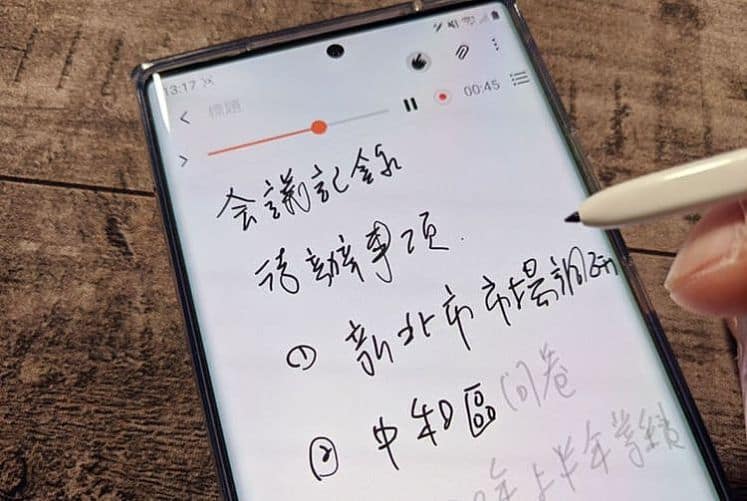 13:17
標題
00:45
会議記錄
待辦事項.
① 新北市市場調研
② 中和區問卷
年上半年業績